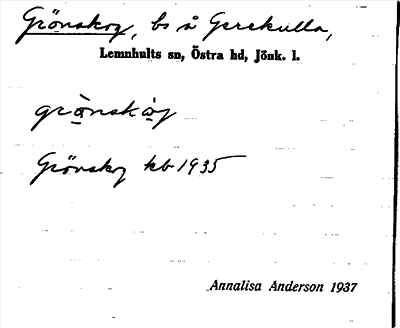 Grönskog, bs å Gerekulla,
Lemnhults sn, Östra hd, Jönk. l.
grö̀nskò̱g
Grönskog kb 1935
Annalisa Anderson 1937